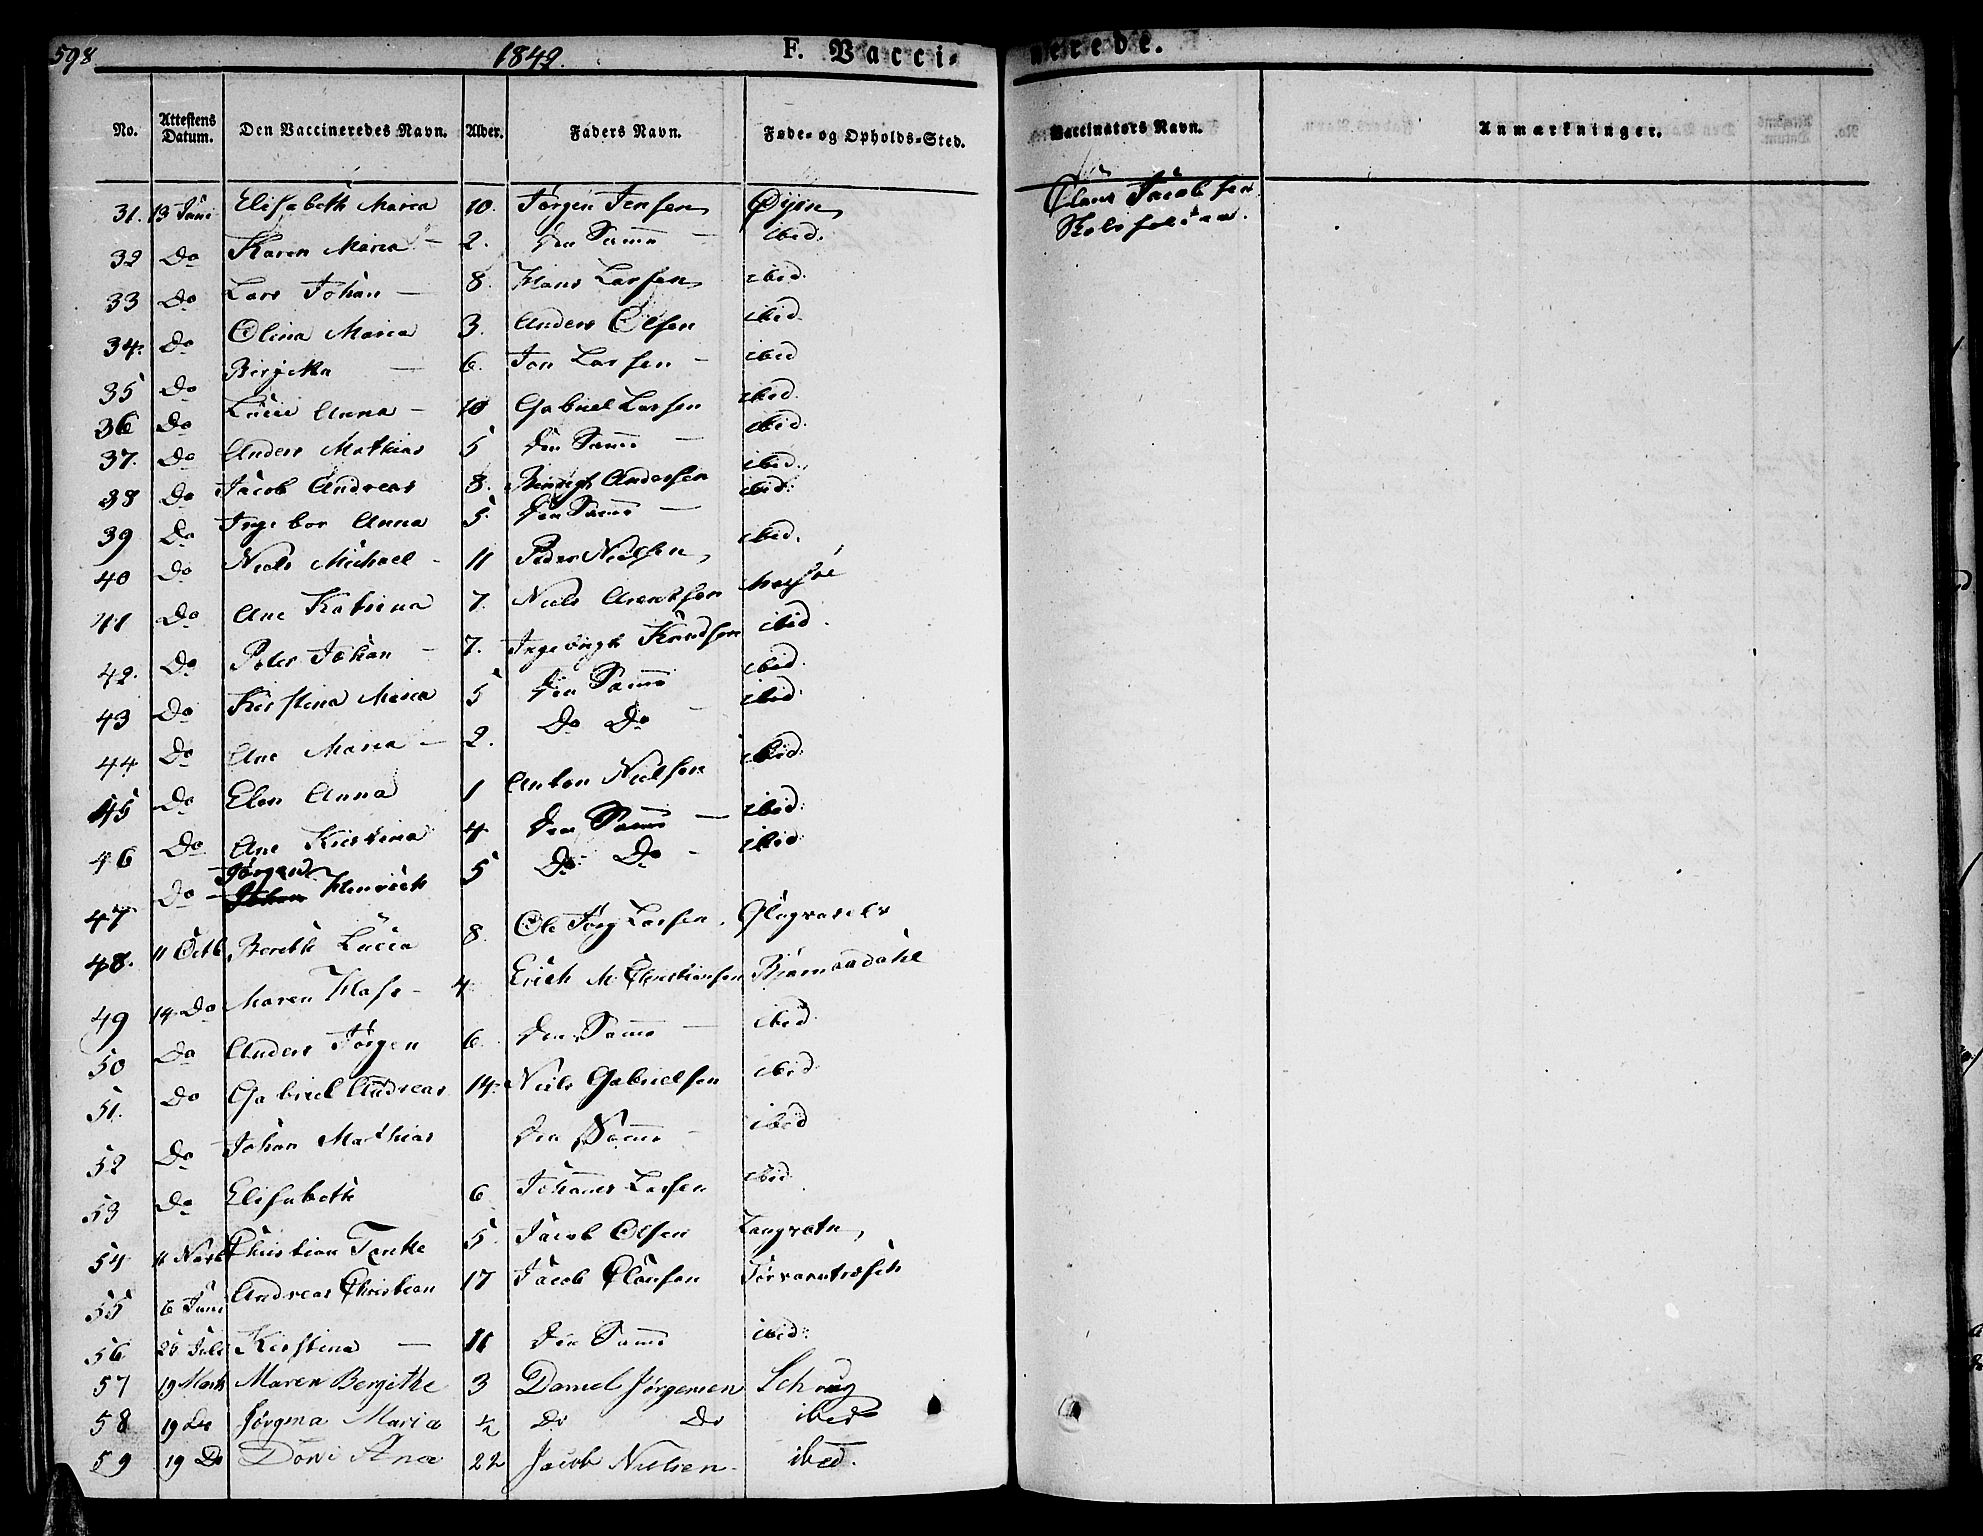 598
1842.
F. Vaccinerede.
No. Attestens Datum. Den Vaccineredes Navn. Alder. Faders Navn. Føde- og Opholds-Sted. Vaccinators Navn. Anmærkninger.
31. 13 Juni Elisabeth Maria 10. Jørgen Jensen Øijen Claus Jacobsen
32 Do Karen Maria – 2. Den Samme – ibid.
33 Do Lars Johan – 8. Hans Larsen ibid.
34. Do Olina Maria 3. Anders Olsen ibid.
35 Do Birgitha – 6. Jon Larsen – ibid
36 Do Lucie Anna – 10 Gabriel Larsen ibid.
37. Do Anders Mathias 5 Den Samme – ibid.
38 Do Jacob Andreas 8. Andersen ibid.
39 Do Ingebor Anna 5. Den Samme – ibid.
40 Do Niels Michael – 11 Peder Nielsen ibid.
41 Do Ane Katrina 7. Niels Arentsen
42. Do Peter Johan – 7. Ingebrigt Knudsen ibid.
43 Do Kirstina Maria 5 Den Samme ibid.
44 Do Ane Maria – 2. Do Do – ibid.
45 Do Elen Anna 1 Anton Nielsen ibid.
46 Do Ane Kirstina 4 Den Samme – ibid.
47 Do – Jørgen Johan Henrich 5 Do Do – ibid
48. 11 Octb. Berethe Lucia 8. Ole Jørg Larsen.
49 14 Do Maren Hass – 4 Erich M. Christiansen Bjørnaadahl
50 Do Anders Jørgen 6. Den Samme – ibid.
51. Do Gabriel Andreas 14. Niels Gabrielsen ibid.
52 Do Johan Mathias Den Samme – ibid
53 Do Elisabeth 6 Johannes Larsen ibid.
54 11 Novb Christian Tenke 5. Jacob Olsen Langvatn
55 6 Juni Andreas Christian 17 Jacob Clausen
56 25 Juli Kirstina – 11 Den Samme ibid.
57 19 Marts Maren Bergithe 3 Daniel Jørgensen
58 19 do Jørgina Maria ½ Do Do ibid
59 19 Do Dorthe Ana 22 Jacob Nielsen ibid.